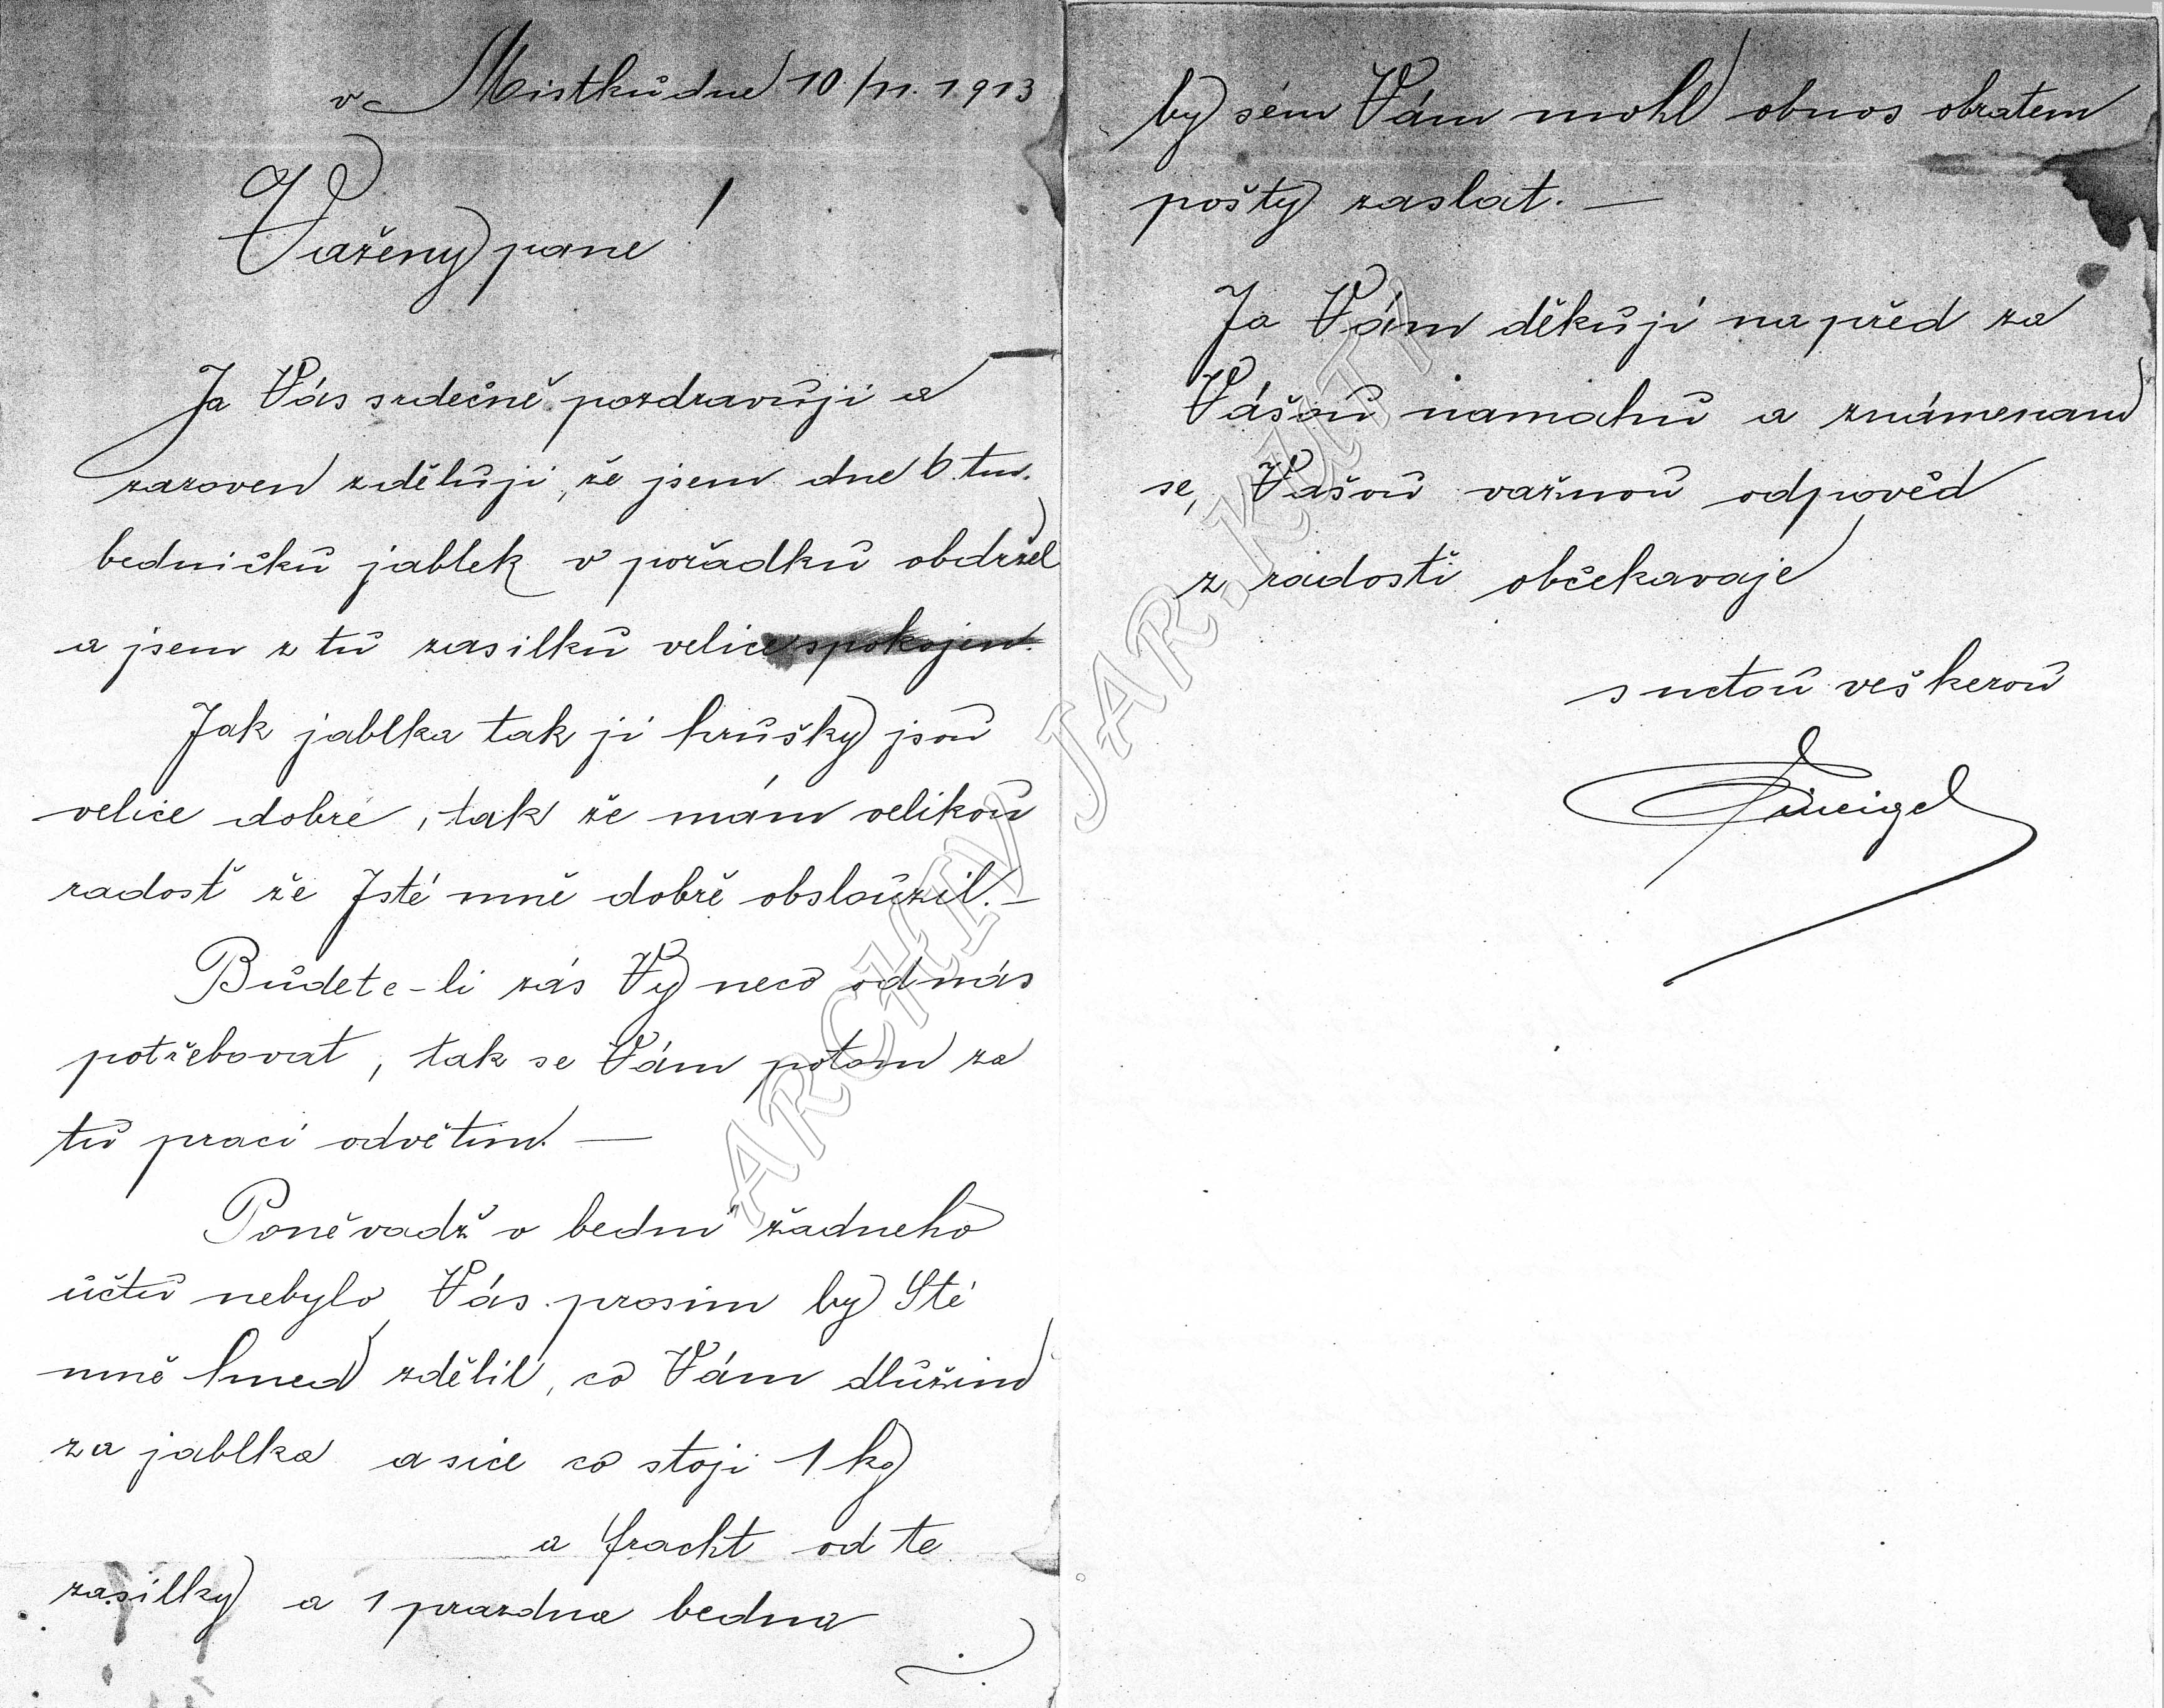 v Mistku dne 10./11. 1913
Važeny pane!
Ja Vás srdečně pozdravuji a
zaroven zděluji, že jsem dne 6. tm.
bedničku jablek v pořádku obdržel
a jsem z tu zasilku velice spokojen.
Jak jablka tak ji hrušky jsou
velice dobré, tak že mám velikou
radosť že Jsté mně dobrě obsloužil. —
Budete-li zás Vy neco od nás
potřebovat, tak se Vám potom za
tu praci odvětim. —
Poněvadž v bedni žadneho
účtu nebylo Vás prosim by Sté
mně hned zdělil, co Vám dlužim
za jablka a sice co stoji 1 kg
a fracht od te
zasilky a 1 prazdna bedna
by sém Vám mohl obnos obratem
pošty zaslat. —
Ja Vám děkuji napřed za
Vášou namahu a známenam
se, Vašou važnou odpověd
z radosti občekavaje
s uctou veškerou
ARCHIV JAR. KUTY